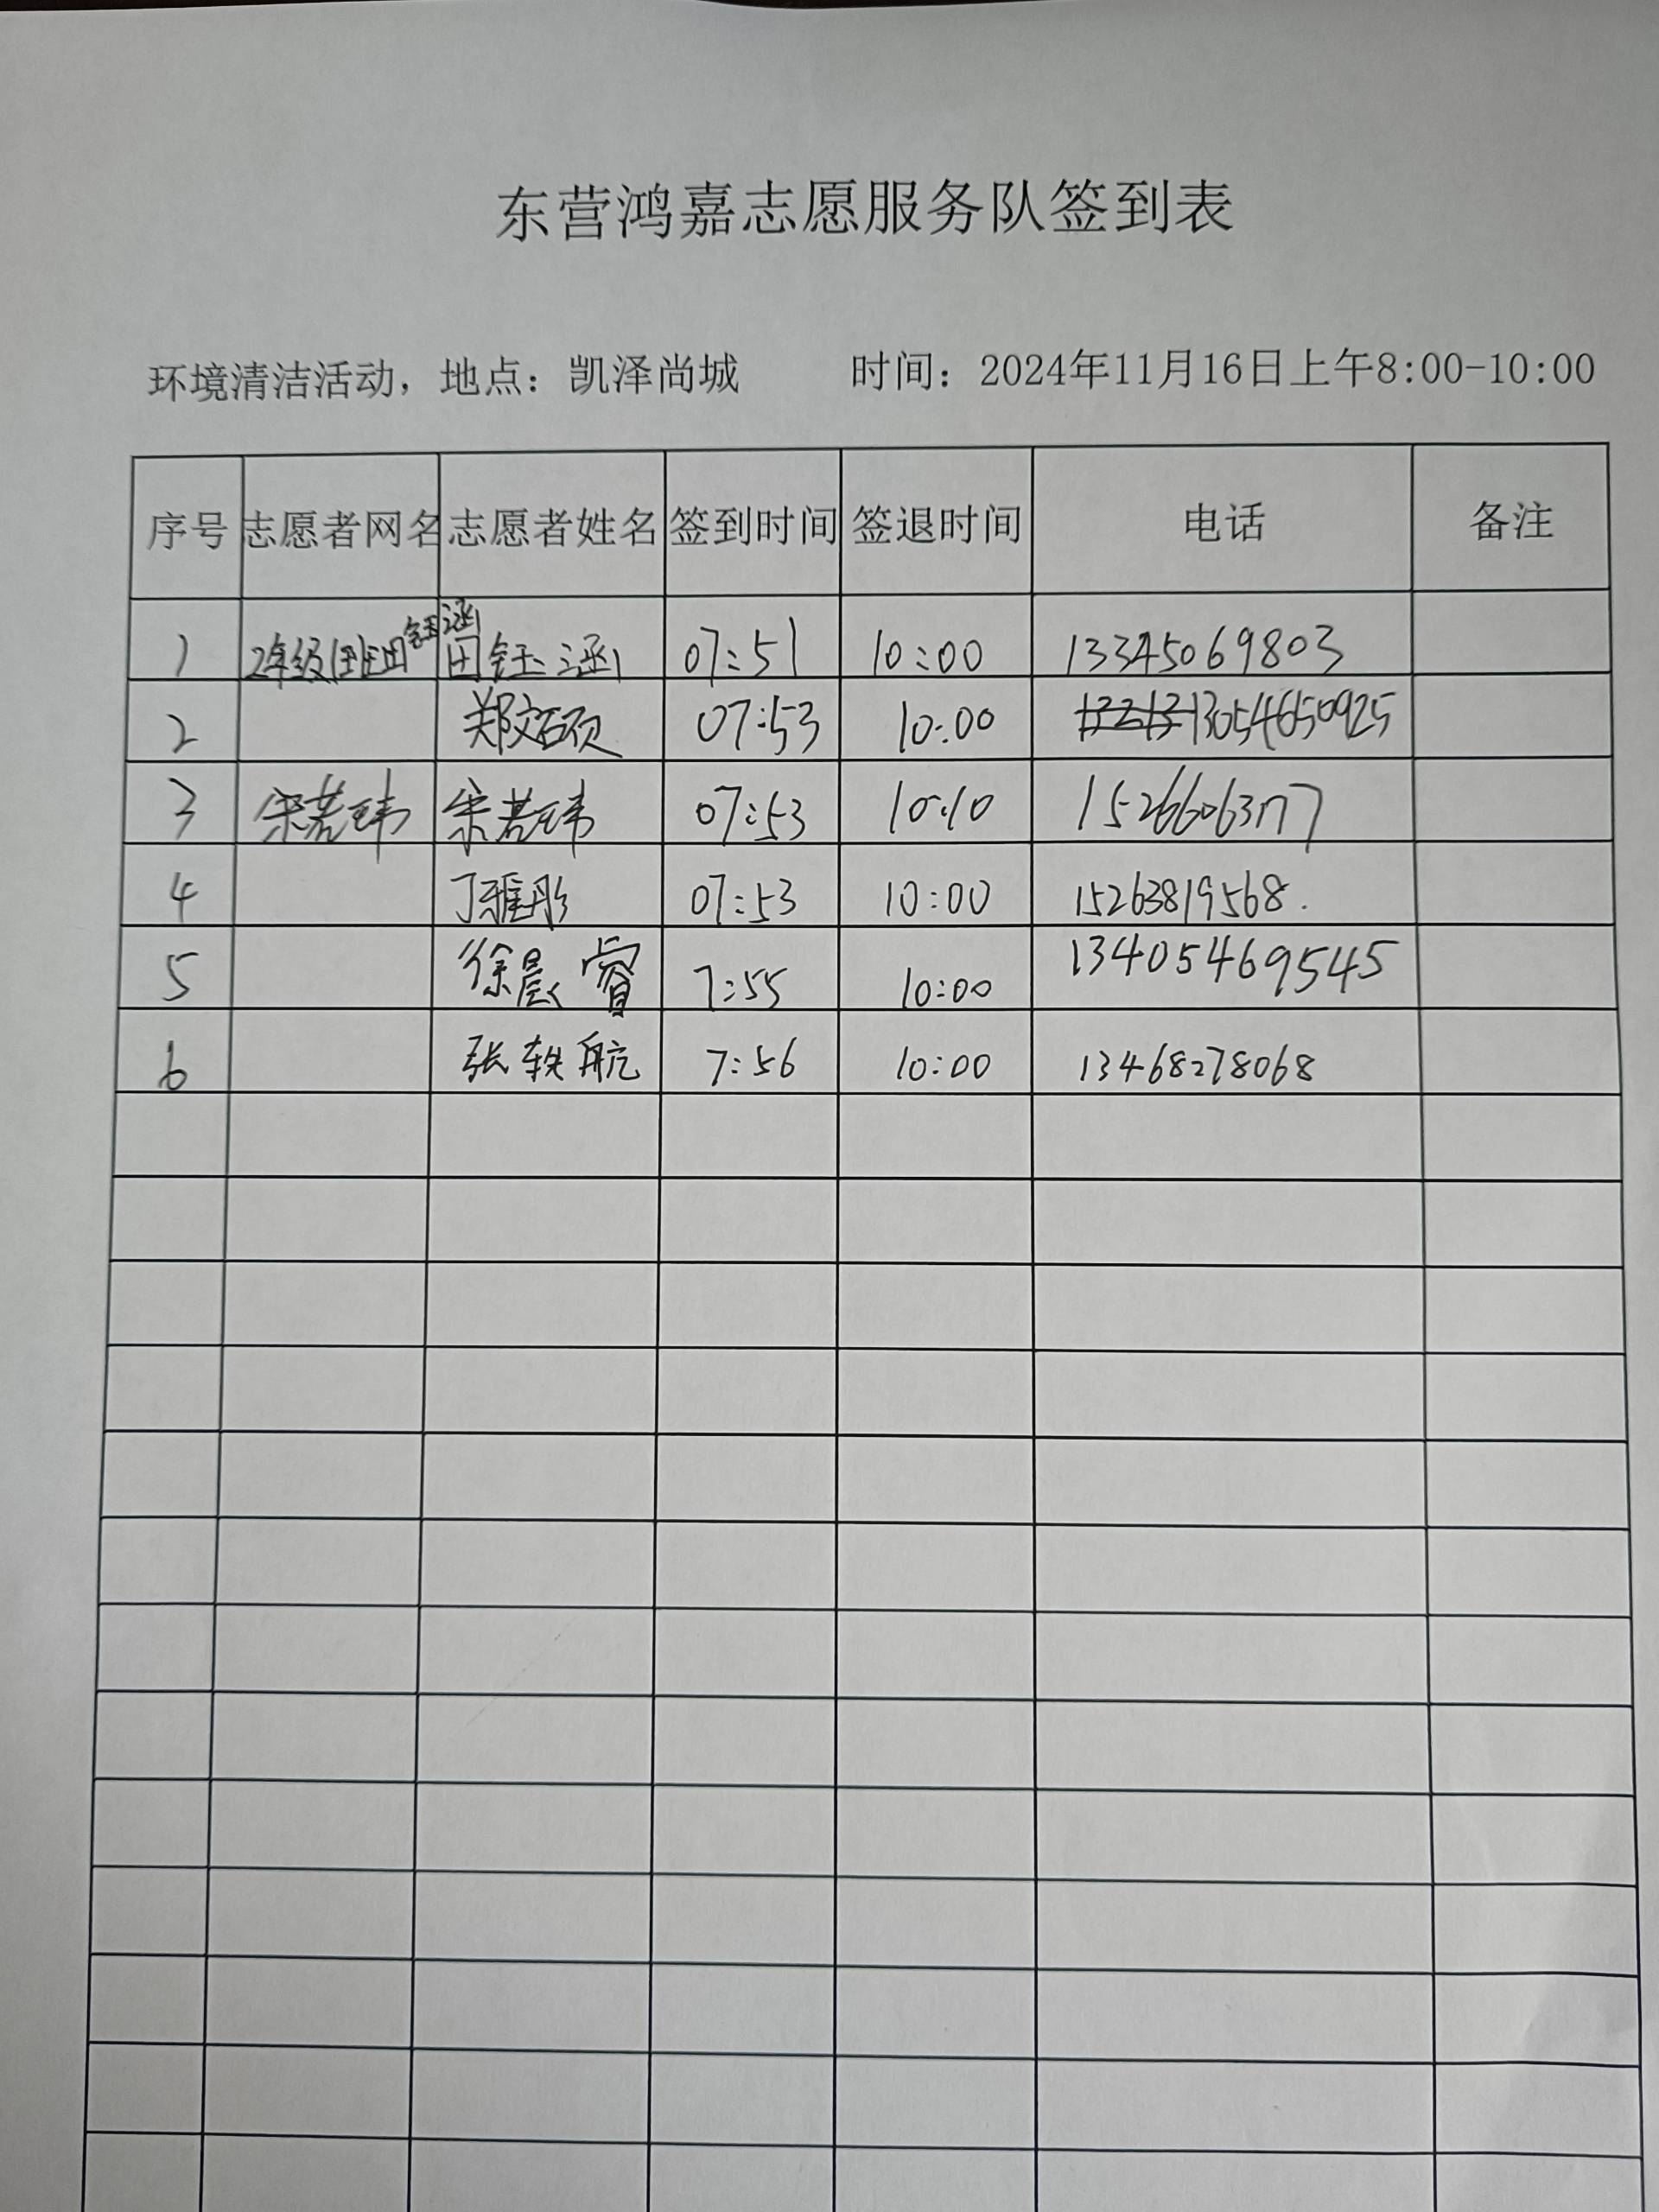 东营鸿嘉志愿服务队签到表
环境清洁活动，地点：凯泽尚城 时间：2024年11月16日上午8:00-10:00
序号 志愿者网名 志愿者姓名 签到时间 签退时间 电话 备注
1 2年级1班田钰涵 田钰涵 07:51 10:00 13345069803
2 郑文硕 07:53 10:00 13054650925
3 宋若玮 宋若玮 07:53 10:10 15266063177
4 丁雅彤 07:53 10:00 15263819568.
5 徐晨睿 7:55 10:00 13405469545
6 张轶航 7:56 10:00 13468278068